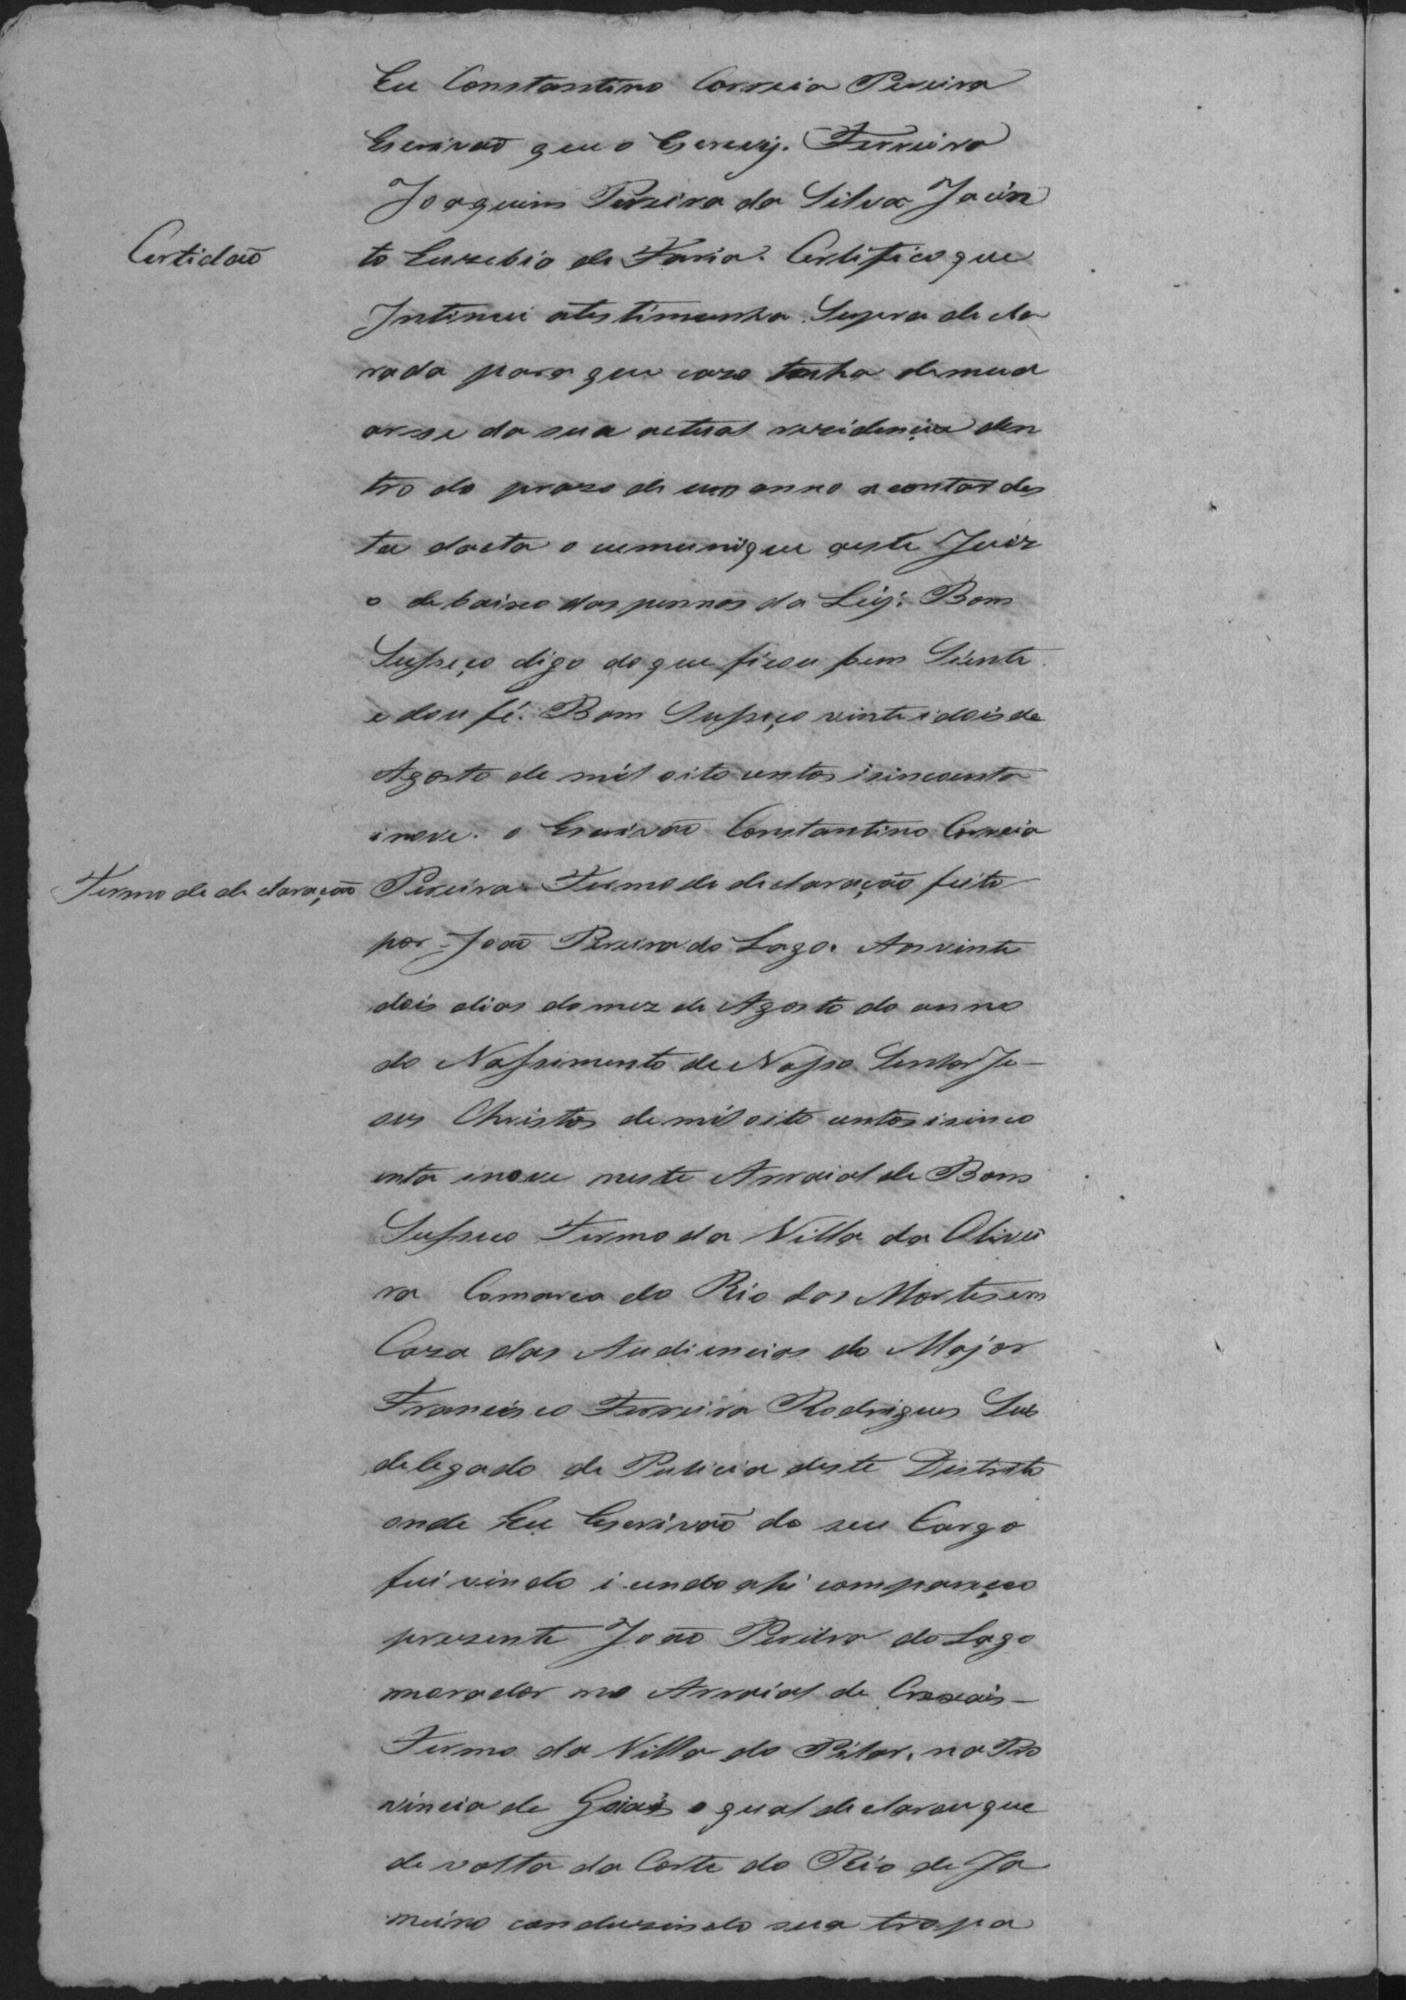 Eu Constantino Correia Pereira
Escrivaõ que o Escrevy. Ferreira
Joaquim Pereira da Silva Jacin
Certidaõ
to Euzebio de Faria. Certifico que
Intimei atestimunha Supra decla
rada para que cazo tenha demud
arse da sua actual rezidencia den
tro do prazo de um anno a contar des
ta dacta o cumunique aeste Juiz
o debaixo das pennas da Leý. Bom
Suʃseço digo do que ficou bem Siente
e dou fé. Bom Suʃseço vinte i dois de
Agosto de mil oito centos i sincoenta
i nove. o Escrivaõ Constantino Correia
Termo de declaração
Pereira. Termo de declaração feito
por João Pereira do Lago. Aos vinte
dois dias do mez de Agosto do anno
do Naʃsimento de Noʃso Senhor Je-
sus Christos de mil oito centos i sinco
enta i nove neste Arraial de Bom
Suʃseco Termo da Villa da Olivei
ra Comarca do Rio das Mortes em
Caza das Audiencias do Major
Francisco Ferreira Rodrigues Sub
delegado de Pulicia deste Distrito
onde Eu Escrivaõ do seu Cargo
fui vindo i sendo ahi compareço
presente João Pereira do Lago
morador no Arraial de Crixais-
Termo da Villa do Pilar, na Pro
vincia de Goiais o qual declarou que
de volta da Corte do Rio de Ja
neiro conduzindo sua tropa